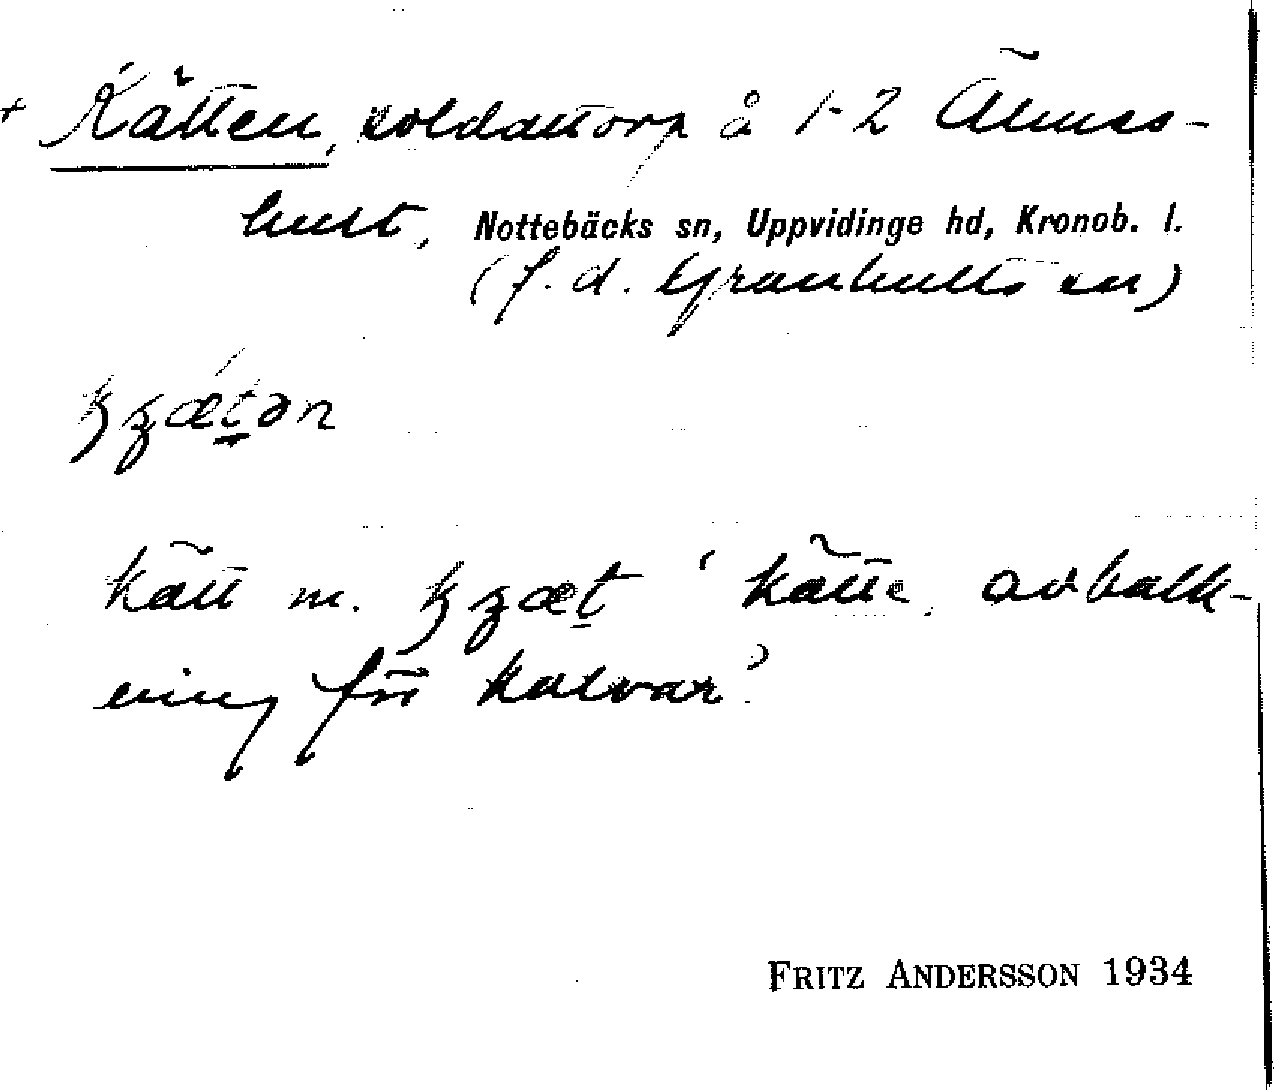 + Kätten, soldattorp å 1-2 Älmes-
hult, Nottebäcks sn, Uppvidinge hd, Kronob. l.
(f. d. Granhults sn)
kʒætən
kätt m. kʒæt ‘kätte, avbalk-
ning för kalvar’
FRITZ ANDERSSON 1934